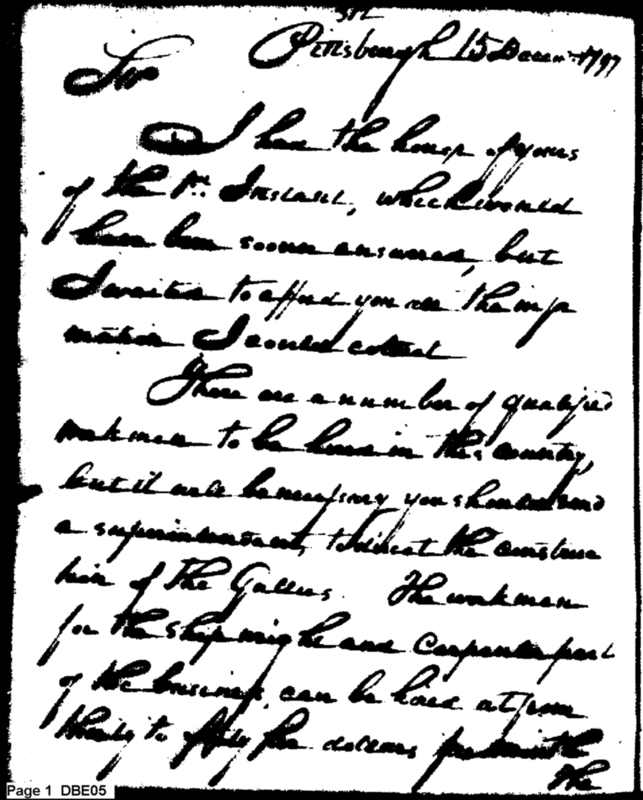 Pittsburgh 15 Decem. 1797
Sir
I have the honor of yours
of the 1st. Instant, which would
have been sooner answered, but
I waited to afford you all the infor
mation I could collect
There are a number of qualified
workmen to be hired in this country,
but it will be necessary you should send
a superintendant, to direct the construc
tion of the Gallies. The workmen
for the Shipwright and Carpenters part
of the business, can be hired at from
thirty to fifty five dollars per month
The
Page 1 DBE05